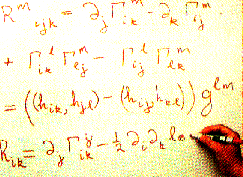 R^m_{ijk} = ∂_j Γ^m_{ik} - ∂_k Γ^m_{ij}
+ Γ^l_{ik} Γ^m_{lj} - Γ^l_{ij} Γ^m_{lk}
= ((h_{ik}, h_{jl}) - (h_{ij}, h_{kl})) g^{lm}
R_{ik} = ∂_j Γ^j_{ik} - ½ ∂_i ∂_k lo